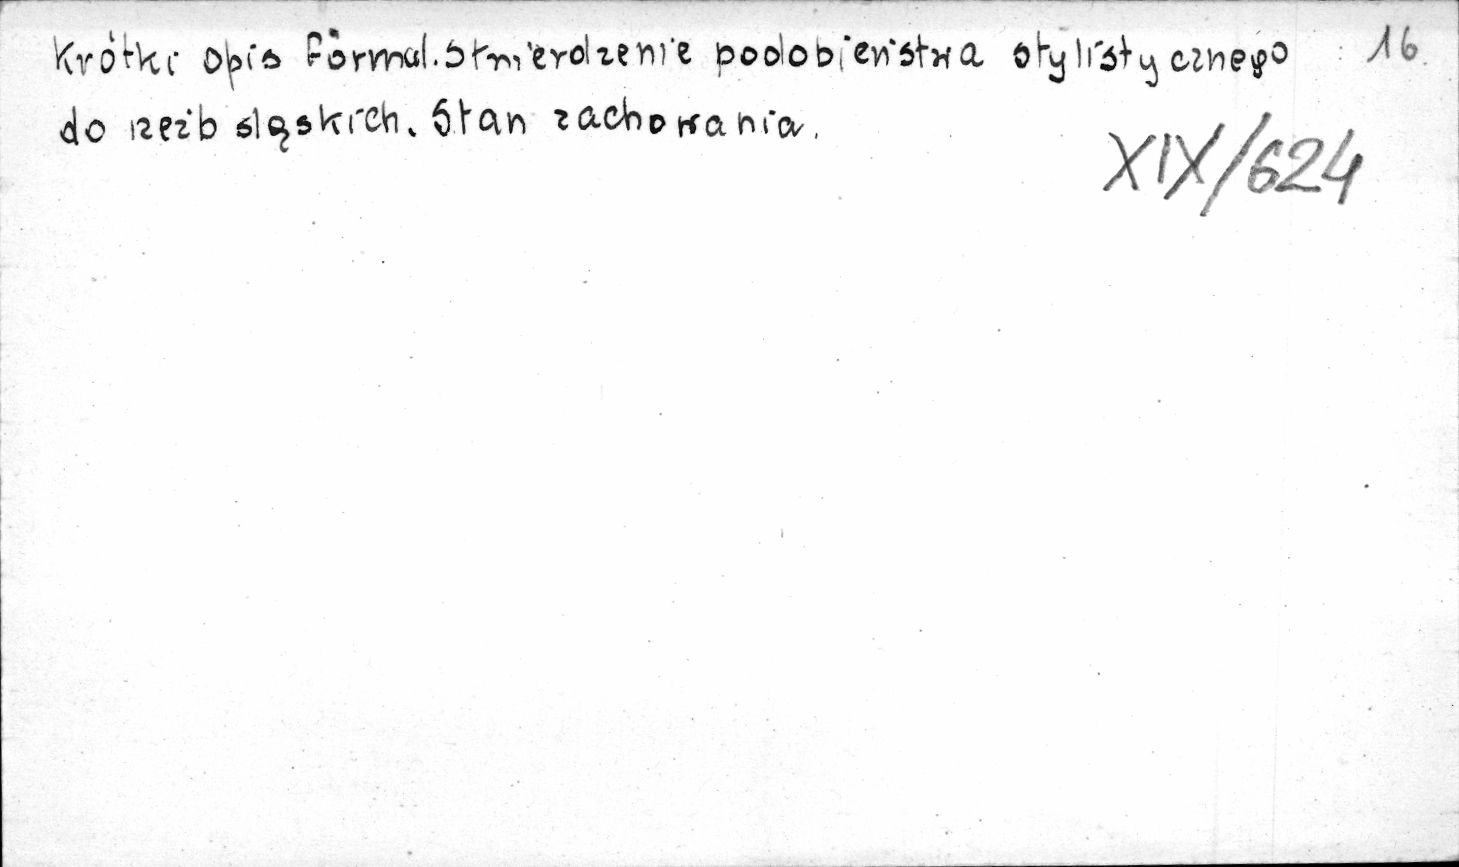 Krótki opis formal. Stwierdzenie podobieństwa stylistycznego 16
do rzeźb śląskich. Stan zachowania.
XIX/624